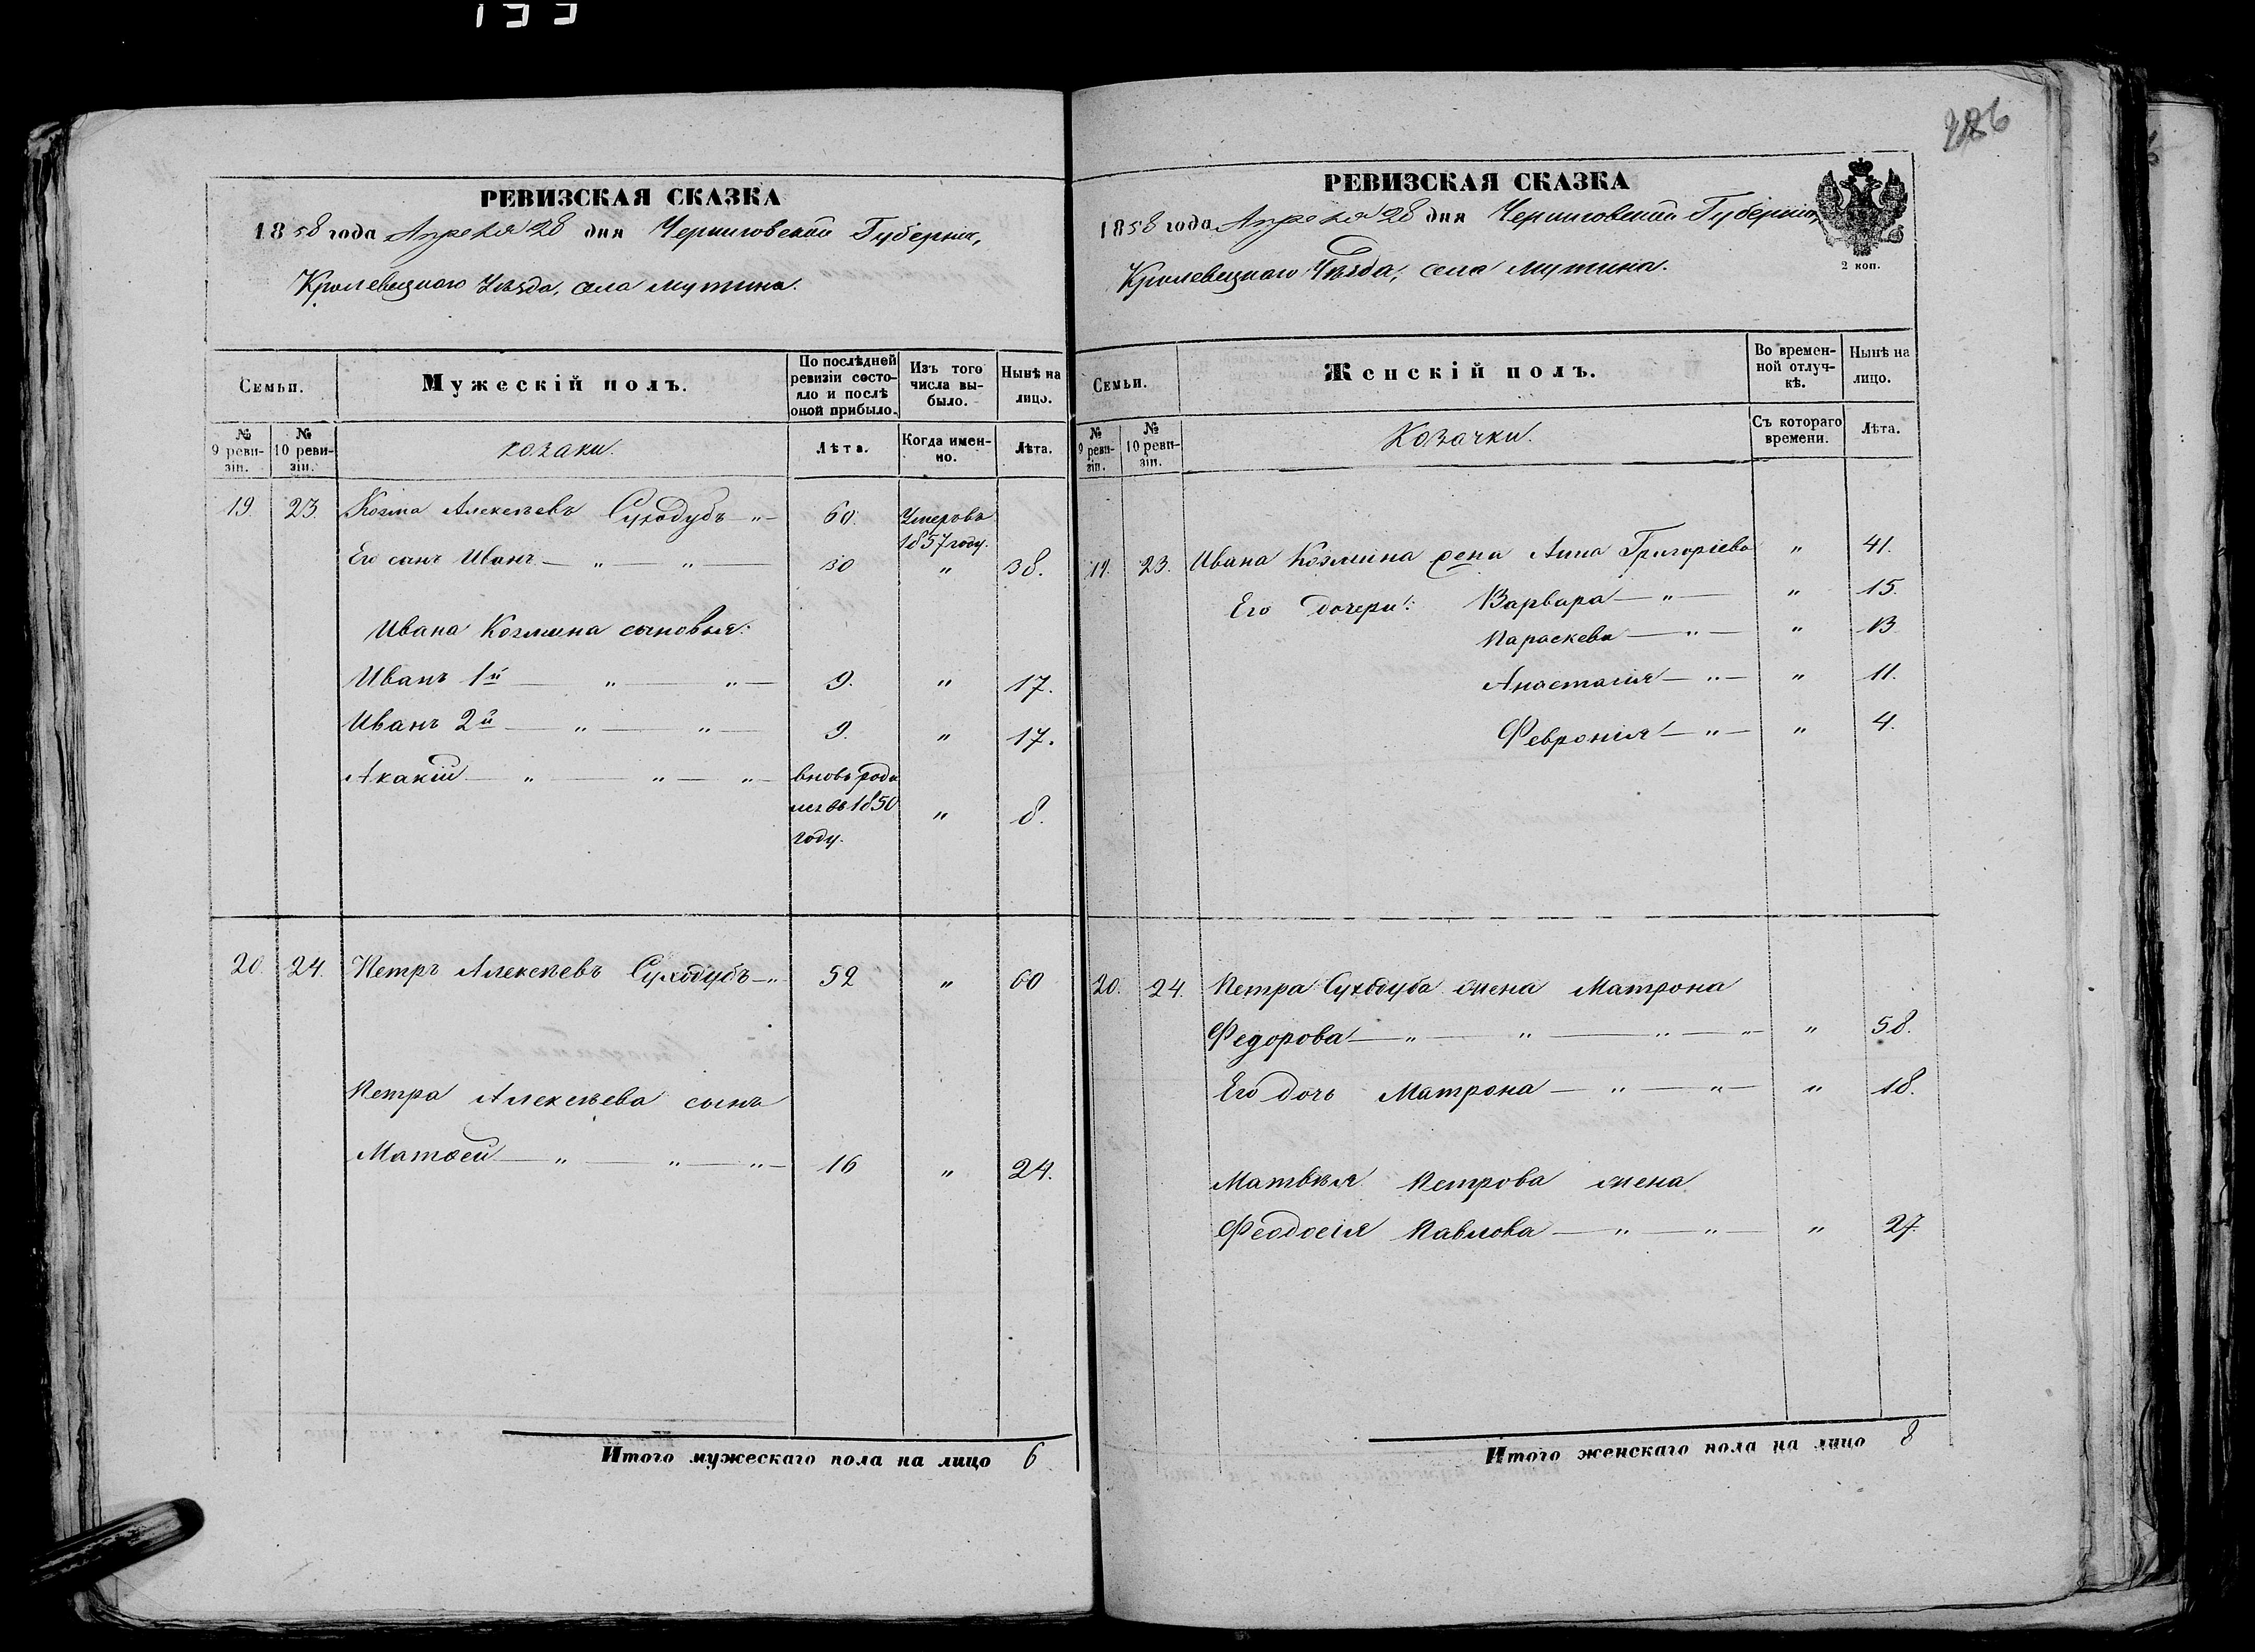 133
РЕВИЗСКАЯ СКАЗКА
1858 года Апреля 28 дня Черниговской Губернии,
Кролевецкаго Уѣзда, села Мутина.
Семьи.
Мужескій полъ.
По послѣдней ревизіи состояло и послѣ оной прибыло.
Изъ того числа выбыло.
Нынѣ на лицо.
№ 9 ревизіи.
№ 10 ревизіи.
козаки.
Лѣта.
Когда именно.
Лѣта.
19. 23. Козма Алексѣевъ Суходубъ — " — 60. Умеръ въ 1857 году.
Его сынъ Иванъ — " — " — 30 " 38.
Ивана Козмина сыновья:
Иванъ 1й — " — " — 9. " 17.
Иванъ 2й — " — " — 9. " 17.
Акакій — " — " — " — вновь роди
лся въ 1850 " 8.
году.
20. 24. Петръ Алексѣевъ Суходубъ — " 52 " 60
Петра Алексѣева сынъ
Матвей — " — " — " — 16 " 24.
Итого мужескаго пола на лицо 6
РЕВИЗСКАЯ СКАЗКА
1858 года Апреля 28 дня Черниговской Губернии,
Кролевецкаго Уѣзда, села Мутина.
2 коп.
Семьи.
Женскій полъ.
Во временной отлучкѣ.
Нынѣ на лицо.
№ 9 ревизіи.
№ 10 ревизіи.
Козачки.
Съ котораго времени.
Лѣта.
19. 23. Ивана Козмина жена Анна Григоріева " 41.
Его дочери: Варвара — " — " 15.
Параскева — " — " 13
Анастасія — " — " 11.
Февронія — " — " 4.
20. 24. Петра Суходуба жена Матрона
Федорова — " — " — " — " — " 58.
Его дочь Матрона — " — " — " 18.
Матвѣя Петрова жена
Феодосія Павлова — " — " — " 27.
Итого женскаго пола на лицо 8